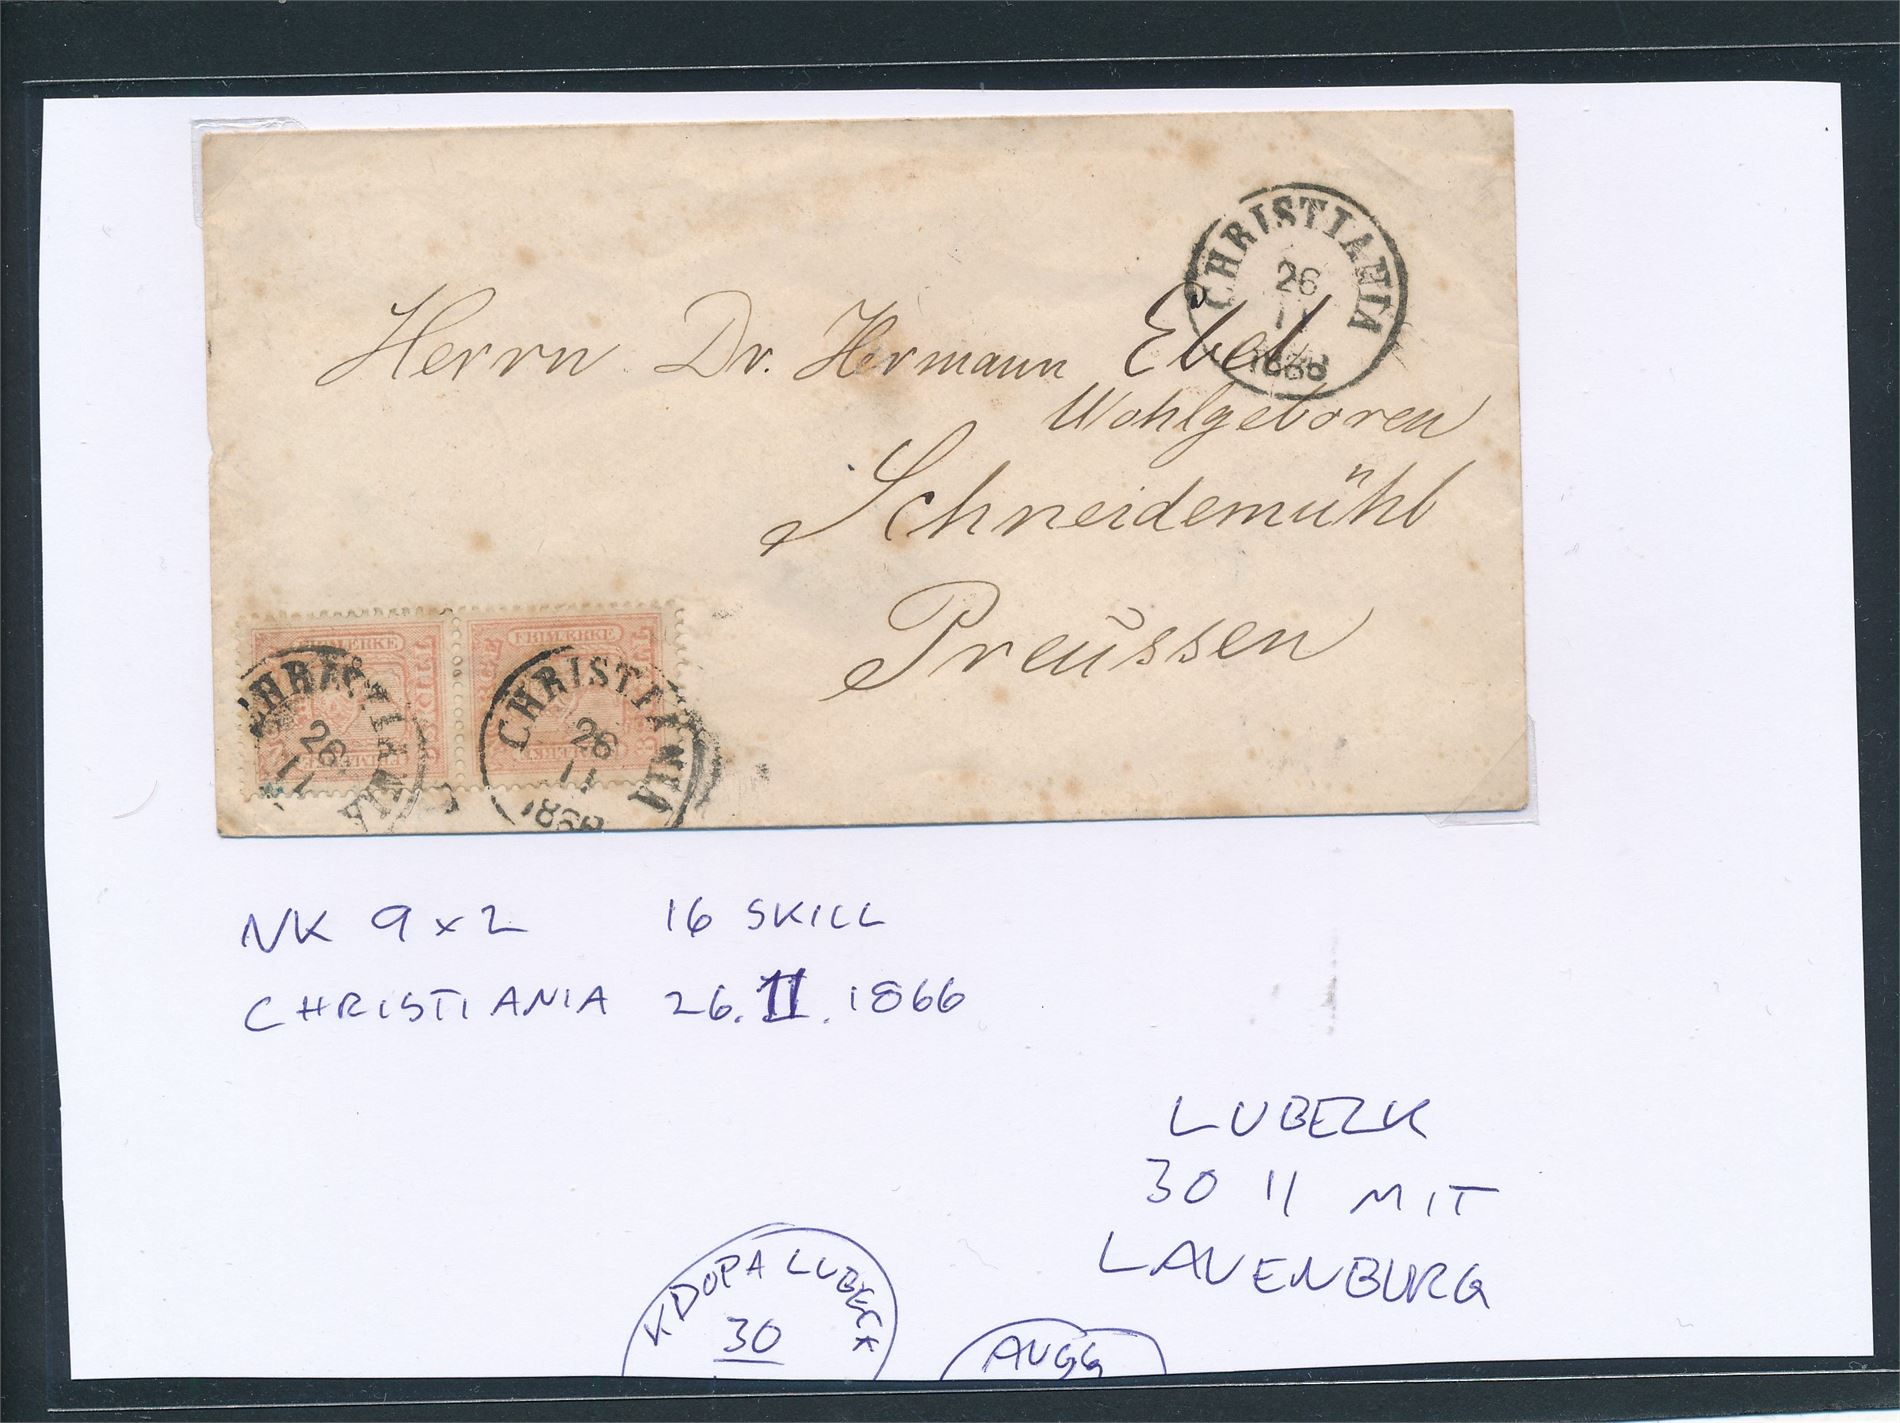 CHRISTIANIA
26
11
1866
Herrn Dr. Hermann Ebel
Wohlgeboren
Schneidemühl
Preussen
FRIMÆRKE
FRIMÆRKE
CHRISTIANIA
26
11
CHRISTIANIA
26
11
1866
NK 9x2 16 SKILL
CHRISTIANIA 26.II.1866
LUBECK
30 11 MIT
LAUENBURG
KDOPA LUBECK
30
AUGG